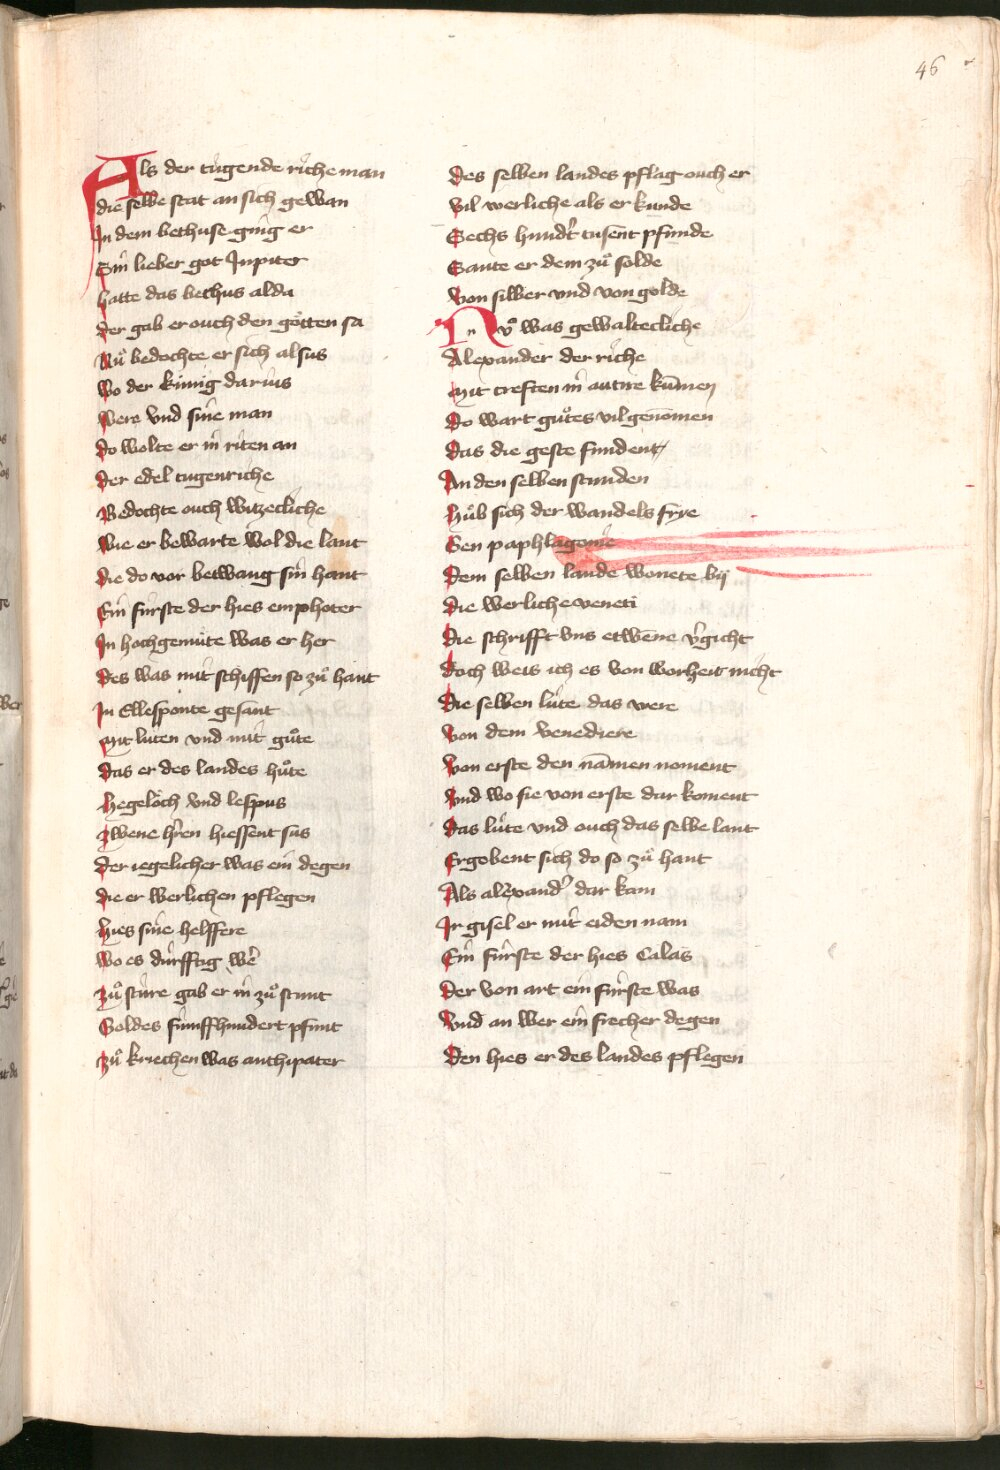 46
Als der tugende riche man
die selbe stat an sich gewan
In dem bethuse ging er
Sin lieber got Jupiter
hatte das bethus alda
der gab er ouch den goͤtten sa
Nuͦ bedochte er sich alsus
wo der kúnig darius
were vnd sine man
do wolte er in riten an
der edel tugenriche
Bedochte ouch witzecliche
wie er bewarte wol die lant
die do vor betwang sin hant
Ein fúrste der hies emphoter
In hochgemuͤte was er her
des was mit schiffen so zuͦ hant
In Ellesponte gesant
mit luten vnd mit guͦte
das er des landes huͦte
hegeloch vnd lespus
zwene hr̄en hiessent sus
der iegelicher was ein degen
die er werlichen pflegen
hies sine helffere
wo es dúrfftig wer̄
zuͦ stúre gab er in zuͦ stunt
Goldes fúnffhundert pfunt
zuͦ kriechen was anthipater
des selben landes pflag ouch er
vil werliche als er kunde
Sechs hundˀt tusent pfunde
Sante er dem zuͦ solde
von silber vnd von golde
Nvͦ was gewaltecliche
Alexander der riche
mit creften in autrie kūmen
do wart guͦtes vil genōmen
das die geste fundent
An den selben stunden
huͦb sich der wandels frye
Gen paphlagonie
dem selben lande wonete bij
die werliche veneti
die schrifft vns etwēne vˀgicht
doch weis ich es von worheit nicht
die selben lúte das were
von dem venediere
von erste den nāmen noment
vnd wo sie von erste dar koment
das lúte vnd ouch das selbe lant
Ergobent sich do so zuͦ hant
Als alexandˀ dar kam
Ir gisel er mit eiden nam
Ein fúrste der hies Calas
der von art ein fúrste was
vnd an wer ein frecher degen
den hies er des landes pflegen